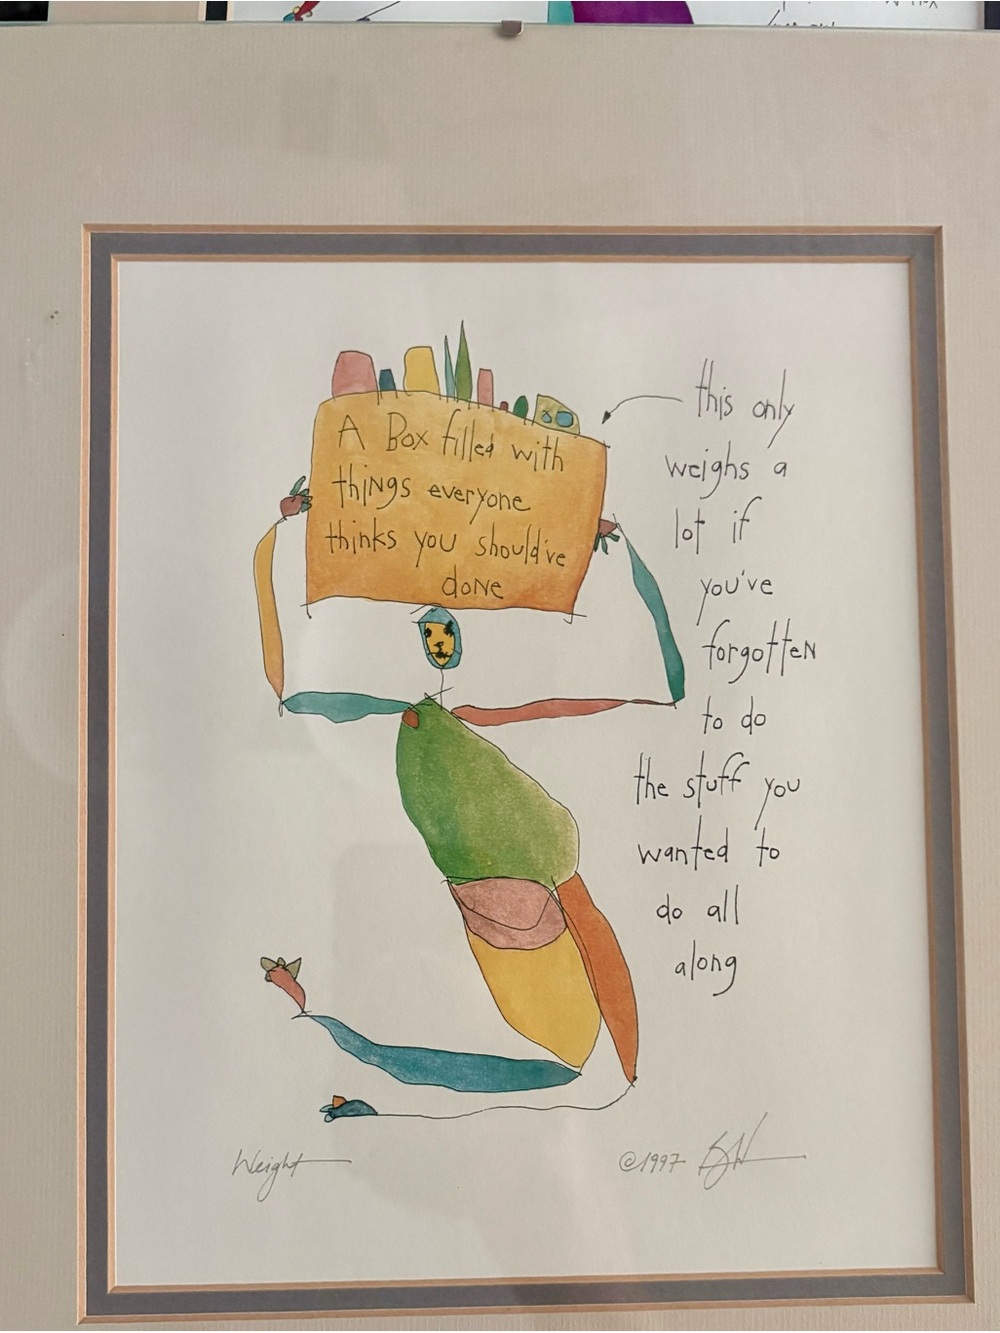 A Box filled with
things everyone
thinks you should've
done
this only
weighs a
lot if
you've
forgotten
to do
the stuff you
wanted to
do all
along
Weight
©1997